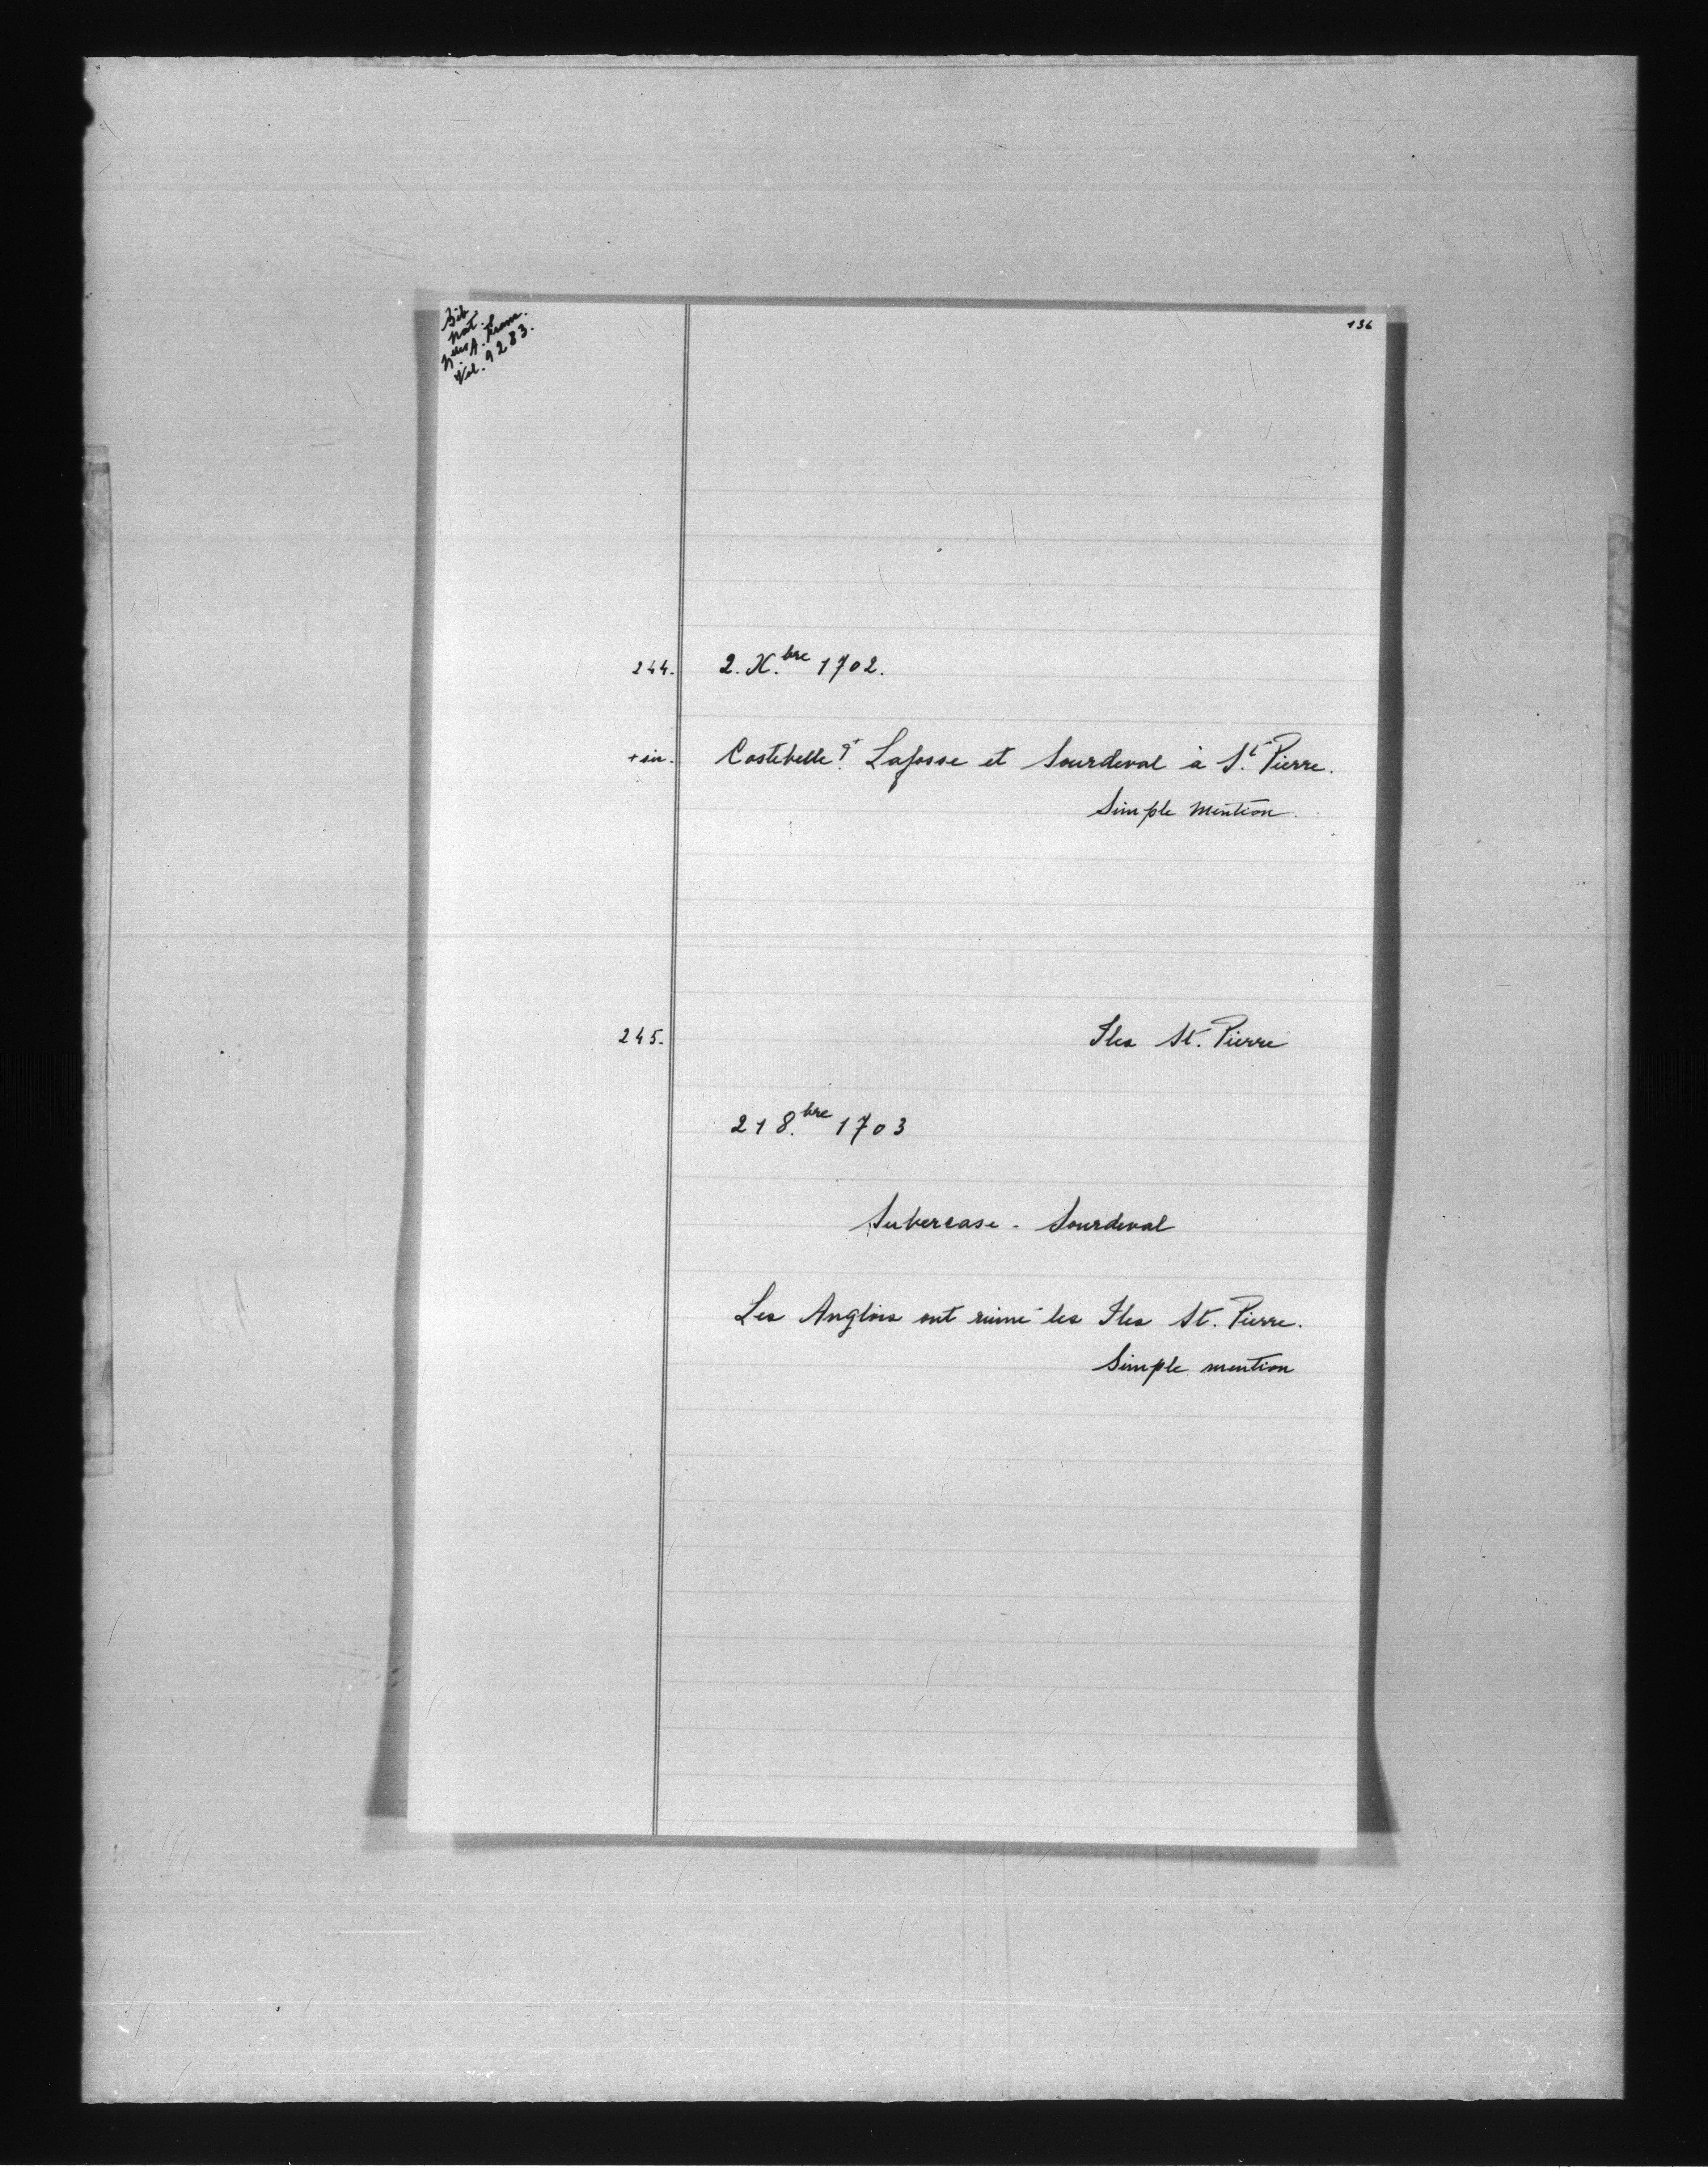 Bib
nat.
Nelles A. franc.
Vol. 9283.
136
244. 2. X.bre 1702.
Costebelle Lafosse et Sourdeval à St. Pierre.
Simple Mention.
245. Iles St. Pierre
21 8.bre 1703
Subercase - Sourdeval
Les Anglois ont ruiné les Iles St. Pierre.
Simple mention